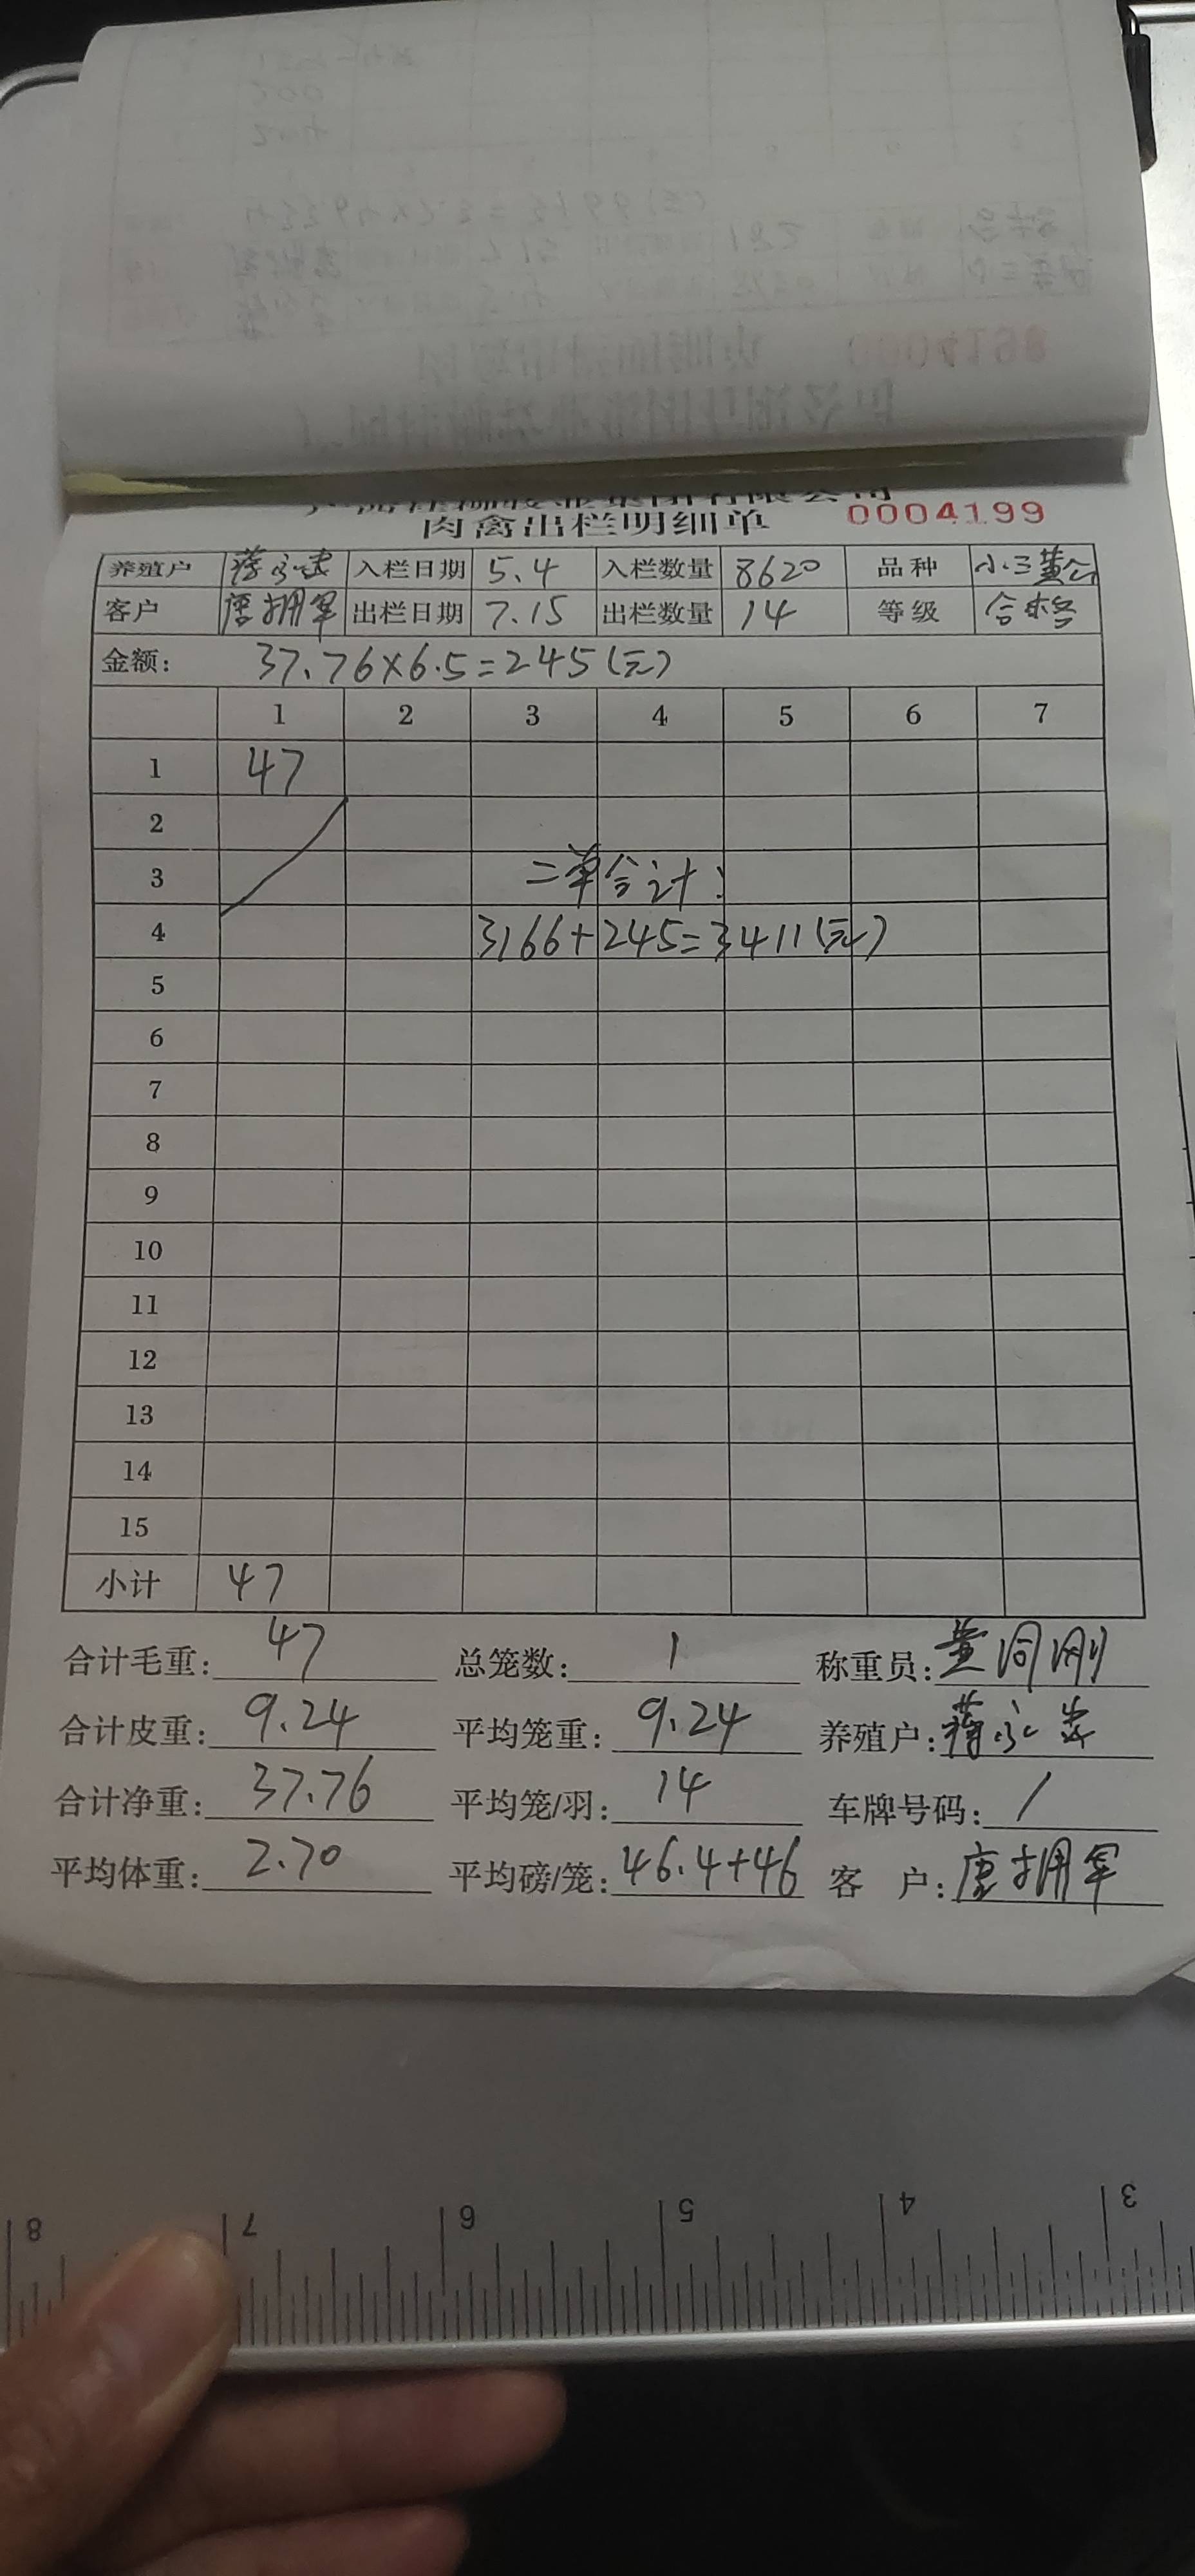 肉禽出栏明细单 0004199
养殖户 入栏日期 5.4 入栏数量 8620 品种
客户 唐拥军 出栏日期 7.15 出栏数量 14 等级 合格
金额: 37.76×6.5=245(元)
1 2 3 4 5 6 7
1 47
2
3 二单合计:
4 3166+245=3411(元)
5
6
7
8
9
10
11
12
13
14
15
小计 47
合计毛重: 47 总笼数: 1 称重员:
合计皮重: 9.24 平均笼重: 9.24 养殖户:
合计净重: 37.76 平均笼/羽: 14 车牌号码: /
平均体重: 2.70 平均磅/笼: 46.4+46 客 户: 唐拥军
8 7 6 5 4 3